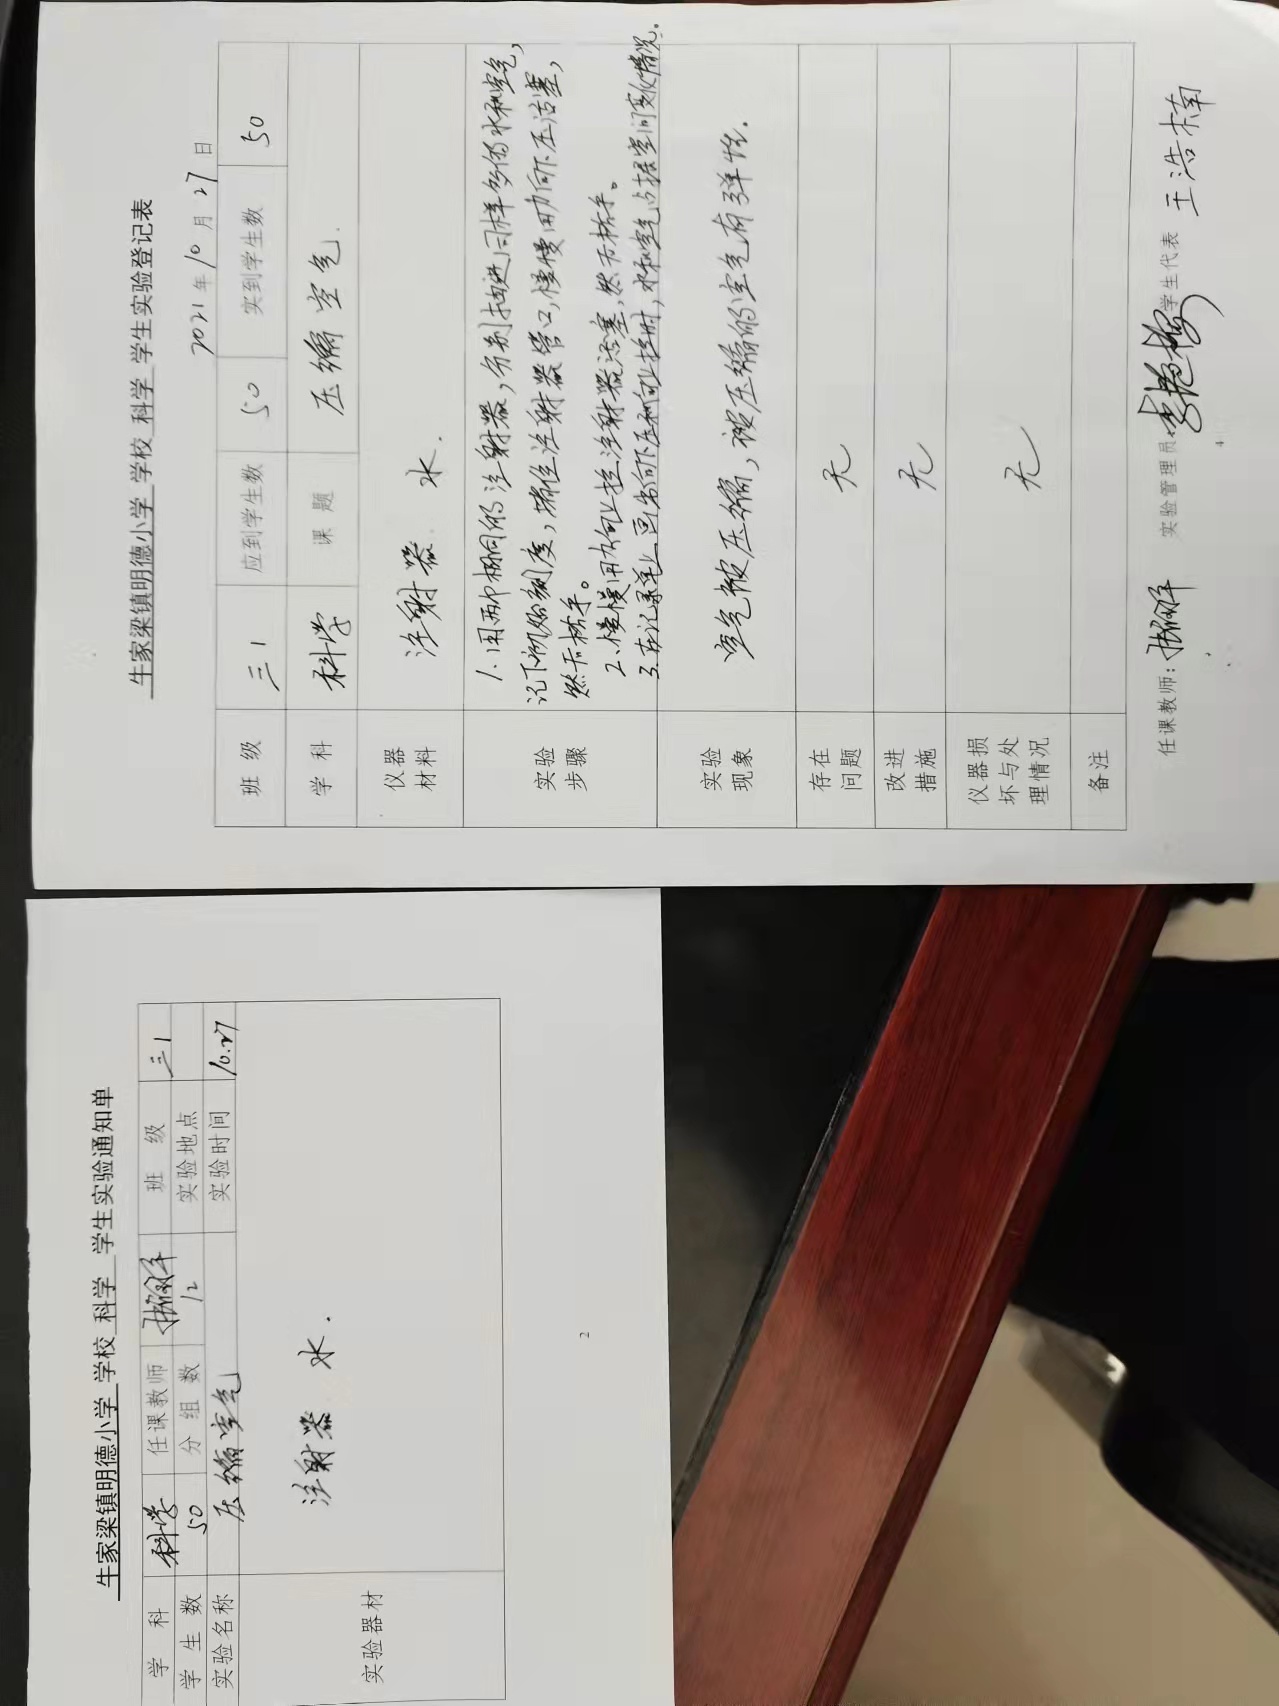 牛家梁镇明德小学 学校 科学 学生实验登记表
2021年10月27日
班 级 三1 应到学生数 50 实到学生数 50
学 科 科学 课 题 压缩空气.
仪器材料 注射器. 水.
实验步骤
1.用两个相同的注射器,分别抽进同样多的水和空气,
记下初始刻度,堵住注射器管口,慢慢用力向下压活塞,
然后松手。
2.慢慢用力向上拉注射器活塞,然后松手。
3.在记录单上画出向下压和向上拉时,水和空气占据空间变化情况.
实验现象 空气被压缩,被压缩的空气有弹性.
存在问题 无
改进措施 无
仪器损坏与处理情况 无
备注
任课教师: 实验管理员 学生代表 王浩楠
4
牛家梁镇明德小学 学校 科学 学生实验通知单
学 科 科学 任课教师 班 级 三1
学 生 数 50 分 组 数 12 实验地点
实验名称 压缩空气 实验时间 10.27
实验器材 注射器 水.
2